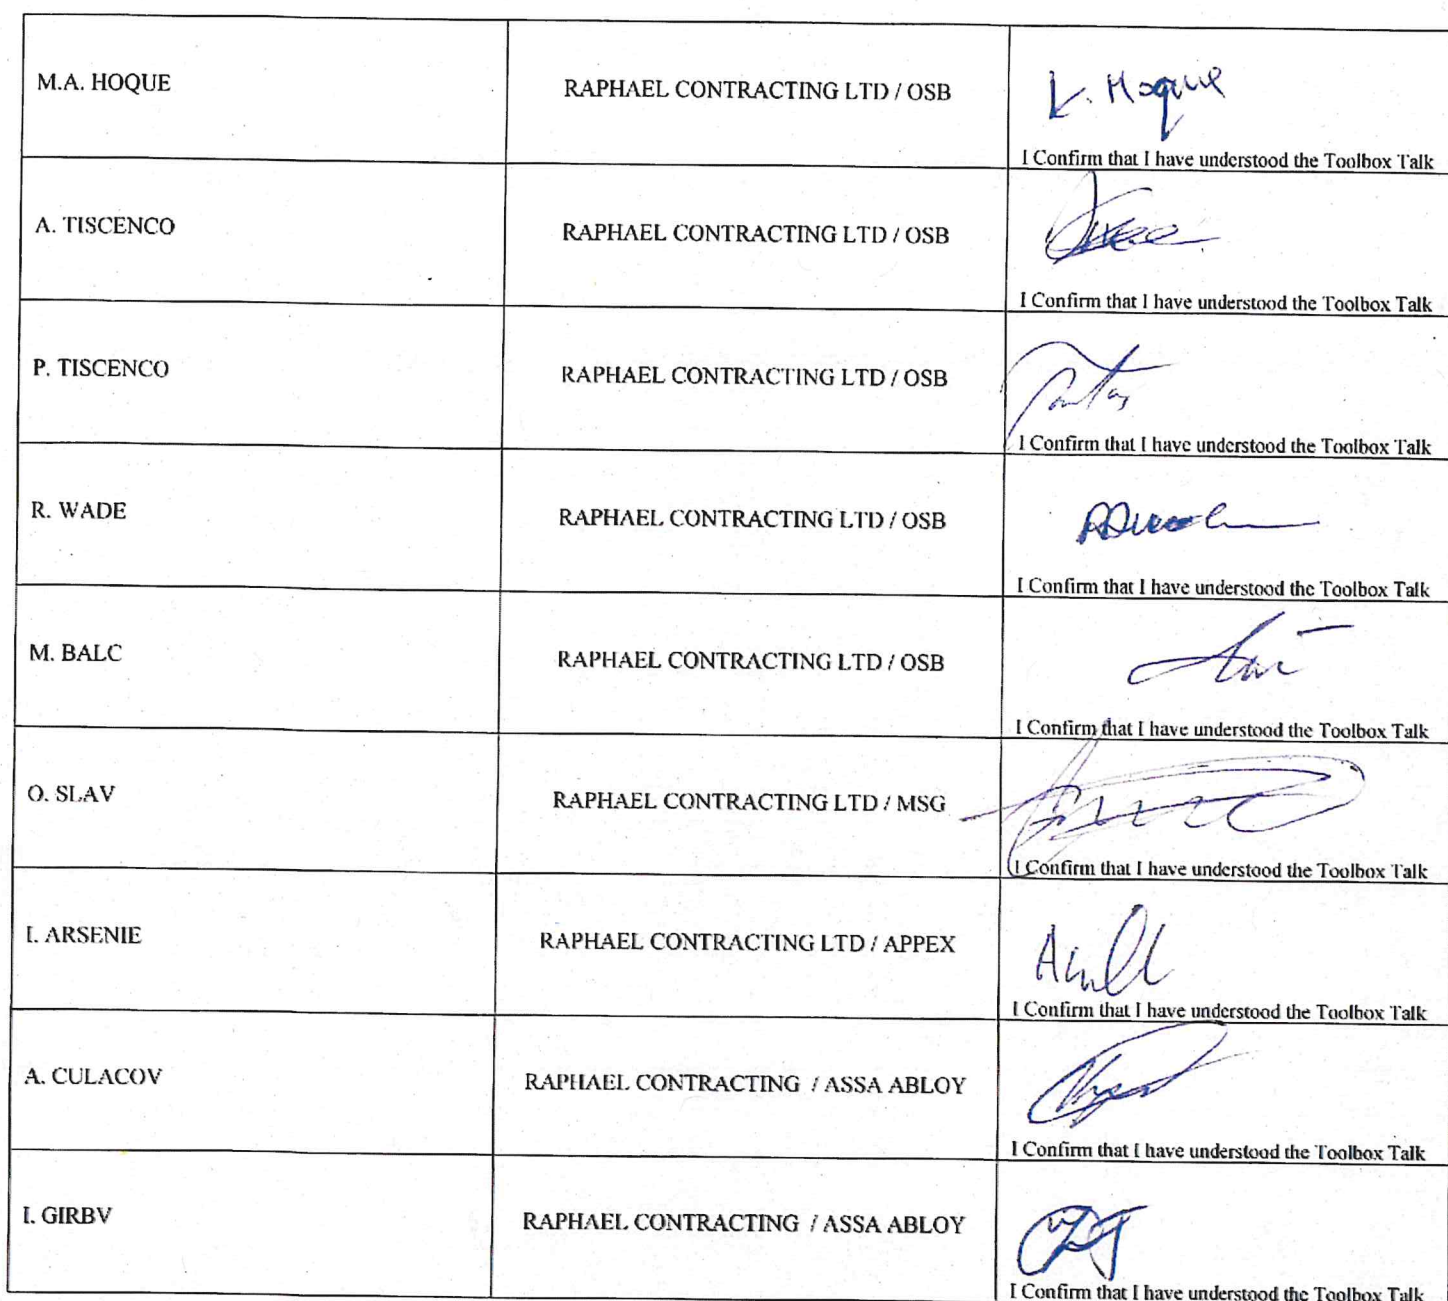 M.A. HOQUE
RAPHAEL CONTRACTING LTD / OSB
Hoque
I Confirm that I have understood the Toolbox Talk
A. TISCENCO
RAPHAEL CONTRACTING LTD / OSB
I Confirm that I have understood the Toolbox Talk
P. TISCENCO
RAPHAEL CONTRACTING LTD / OSB
I Confirm that I have understood the Toolbox Talk
R. WADE
RAPHAEL CONTRACTING LTD / OSB
I Confirm that I have understood the Toolbox Talk
M. BALC
RAPHAEL CONTRACTING LTD / OSB
I Confirm that I have understood the Toolbox Talk
O. SLAV
RAPHAEL CONTRACTING LTD / MSG
I Confirm that I have understood the Toolbox Talk
I. ARSENIE
RAPHAEL CONTRACTING LTD / APPEX
I Confirm that I have understood the Toolbox Talk
A. CULACOV
RAPHAEL CONTRACTING / ASSA ABLOY
I Confirm that I have understood the Toolbox Talk
I. GIRBV
RAPHAEL CONTRACTING / ASSA ABLOY
I Confirm that I have understood the Toolbox Talk